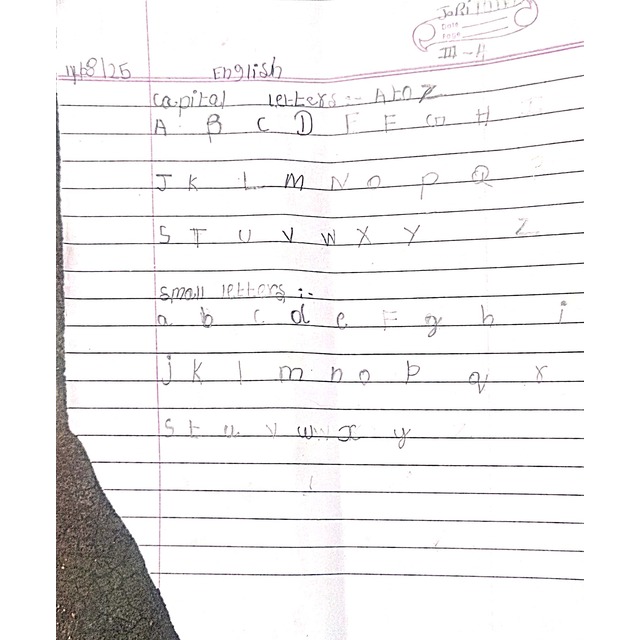 Date
Page
III-4
English
capital letters :- A to Z
A B C D E F G H
J K L m N O P Q
S T U V W X Y Z
small letters :-
a b c d e F g h i
j k l m n o p q r
s t u v w x y